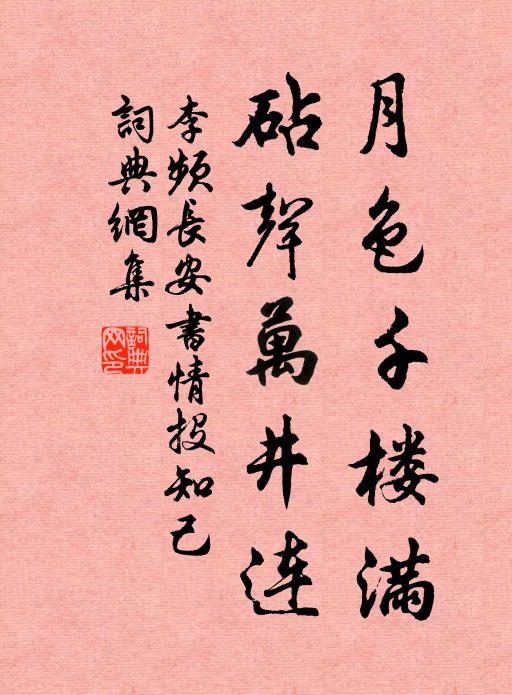 月色千楼滿
砧聲萬井連
李頻長安書情投知己
詞典網集
詞典網印